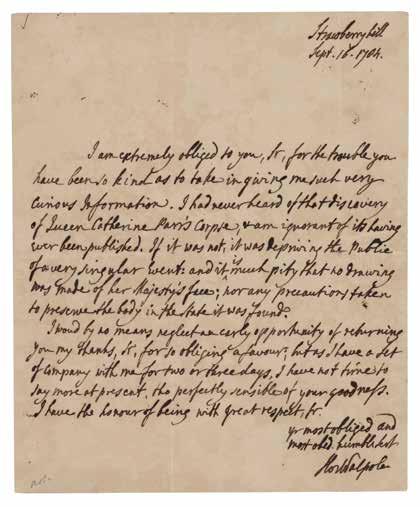 Strawberryhill
Sept. 16. 1784.
I am extremely obliged to you, Sr, for the trouble you
have been so kind as to take in giving me such very
curious Information. I had never heard of that discovery
of Queen Catherine Parr's Corpse, & am ignorant of its having
ever been published. If it was not, it was depriving the Public
of a very singular event: and it is much pity that no drawing
was made of her Majesty's face; nor any precautions taken
to preserve the body in the state it was found.
I woud by no means neglect an early opportunity of returning
you my thanks, Sr, for so obliging a favour; but as I have a set
of company with me for two or three days, I have not time to
say more at present, tho perfectly sensible of your goodness.
I have the honour of being with great respect, Sr
yr most obliged and
most obed. humble sert
Hor Walpole